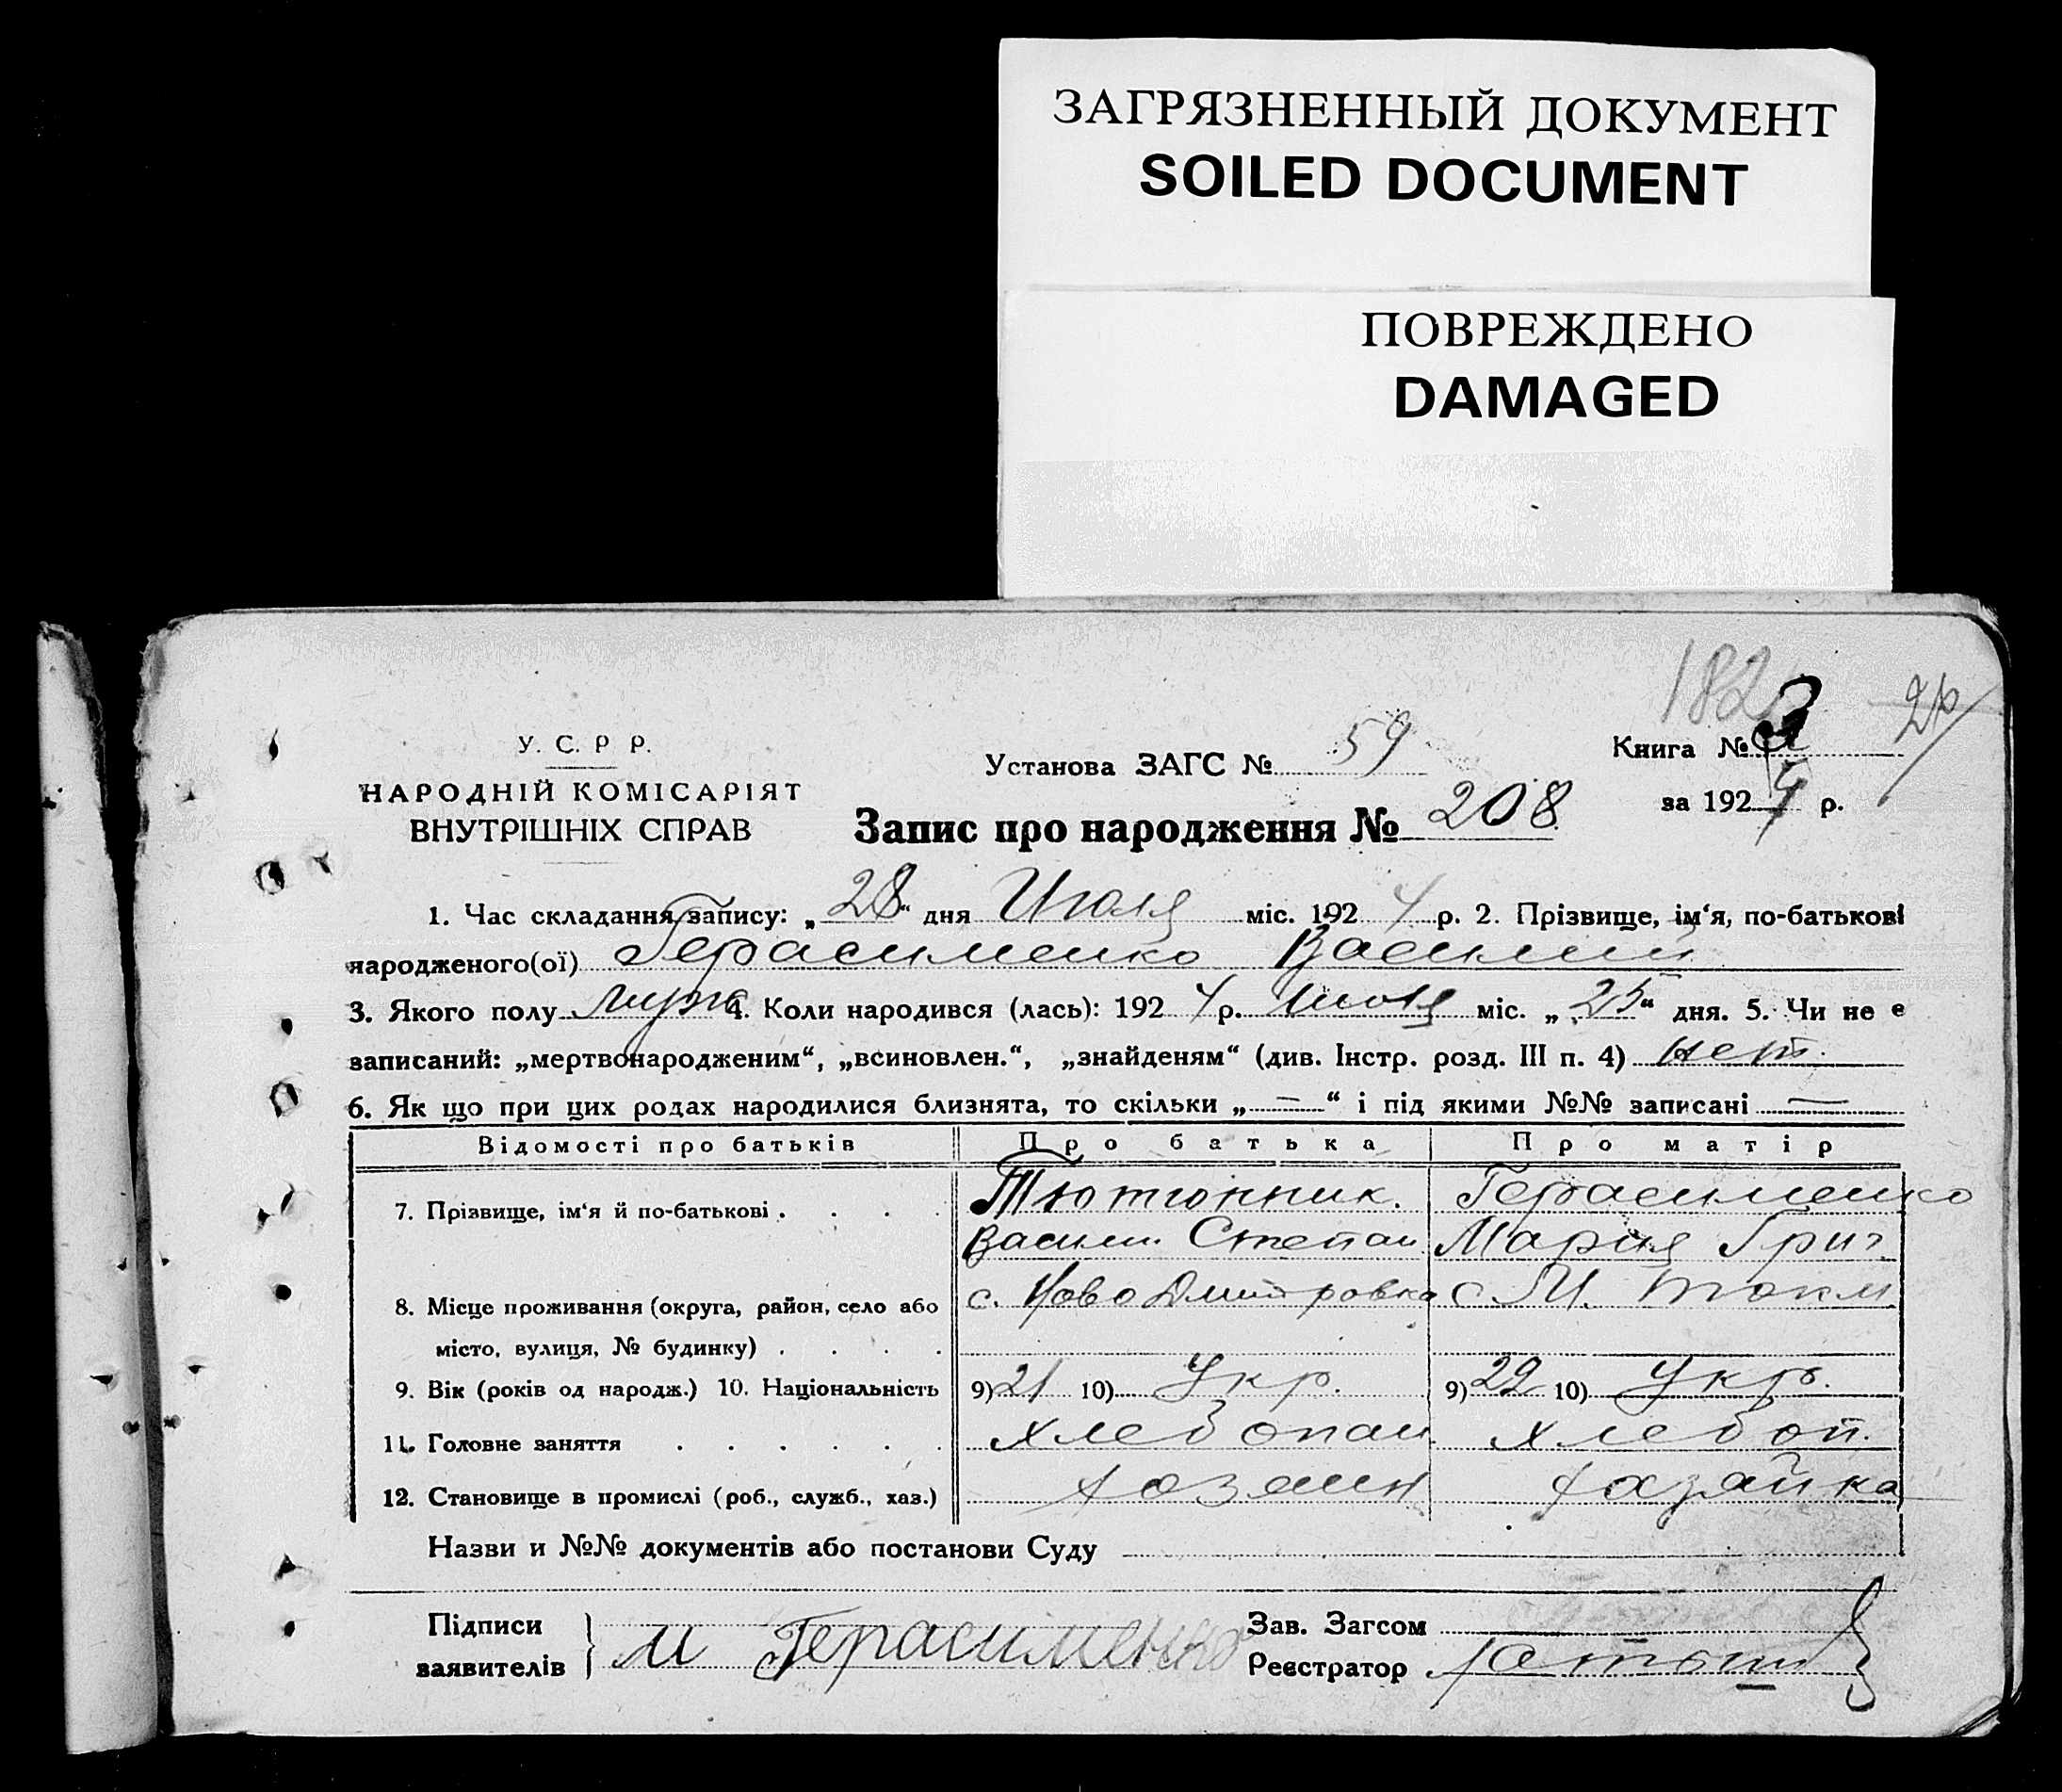 ЗАГРЯЗНЕННЫЙ ДОКУМЕНТ
SOILED DOCUMENT
ПОВРЕЖДЕНО
DAMAGED
182
У. С. Р Р.
НАРОДНІЙ КОМІСАРІЯТ
ВНУТРІШНІХ СПРАВ
Установа ЗАГС № 59
Книга №
за 1924 р.
Запис про народження № 208
1. Час складання запису: „28“ дня Июля міс. 1924 р. 2. Прізвище, ім‘я, по-батькові
народженого(ої) Герасименко Василий
3. Якого полу муж 4. Коли народився (лась): 1924 р. Июля міс. „25“ дня. 5. Чи не є
записаний: „мертвонародженим“, „всиновлен.“, „знайденям“ (див. Інстр. розд. III п. 4) нет.
6. Як що при цих родах народилися близнята, то скільки „—“ і під якими №№ записані —
Відомості про батьків Про батька Про матір
7. Прізвище, ім‘я й по-батькові . . . . Тютюнник. Герасименко
Васили. Степан. Мария Григ.
8. Місце проживання (округа, район, село або с. Ново Дмитровка с. М. Токм.
місто, вулиця, № будинку) . . . .
9. Вік (років од народж.) 10. Національність 9) 21 10) Укр. 9) 22 10) Укр.
11. Головне заняття . . . . . . хлебопаш. хлебоп.
12. Становище в промислі (роб., служб., хаз.) хозяин хазяйка
Назви и №№ документів або постанови Суду
Підписи
заявителів } М Герасименко
Зав. Загсом
Реєстратор